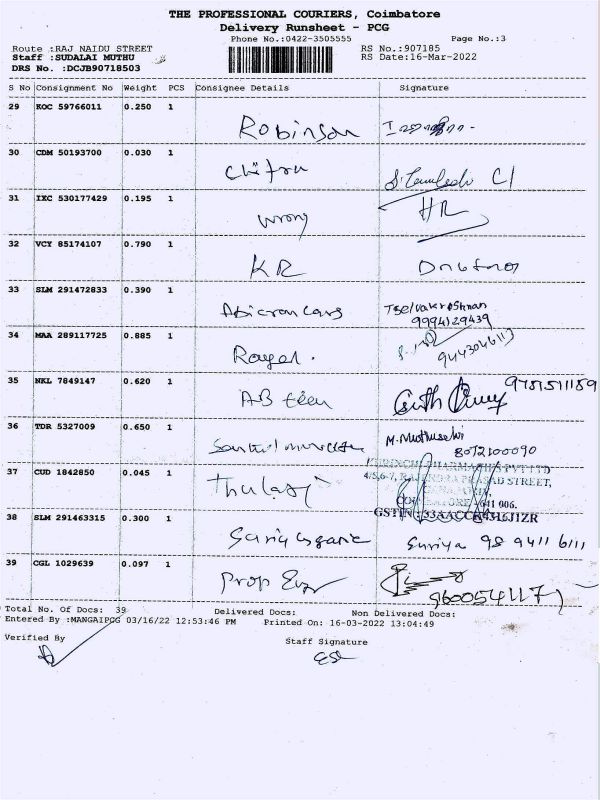 THE PROFESSIONAL COURIERS, Coimbatore
Delivery Runsheet - PCG
Phone No.:0422-3505555
Page No.:3
Route :RAJ NAIDU STREET
RS No.:907185
Staff :SUDALAI MUTHU
RS Date:16-Mar-2022
DRS No. :DCJB90718503
S No Consignment No Weight PCS Consignee Details Signature
29 KOC 59766011 0.250 1
Robinson
30 CDM 50193700 0.030 1
Chitra
31 IXC 530177429 0.195 1
Wrong HR
32 VCY 85174107 0.790 1
KR
33 SLM 291472833 0.390 1
Tselvakrishnan
9994129439
34 MAA 289117725 0.885 1
9443046113
35 NKL 7849147 0.620 1
AB
36 TDR 5327009 0.650 1
M. Muthuselvi
8072100090
37 CUD 1842850 0.045 1
Thulasi
4/5,6-7, RAJENDRA PRASAD STREET,
641 006.
38 SLM 291463315 0.300 1
Suriya 98 9411 6111
39 CGL 1029639 0.097 1
Prop
Total No. Of Docs: 39 Delivered Docs: Non Delivered Docs:
Entered By :MANGAIPCG 03/16/22 12:53:46 PM Printed On: 16-03-2022 13:04:49
Verified By Staff Signature